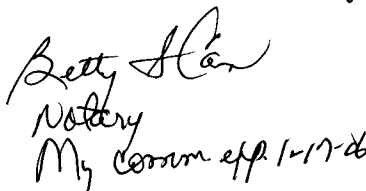 Betty S Cain
Notary
My comm exp. 1-17-06